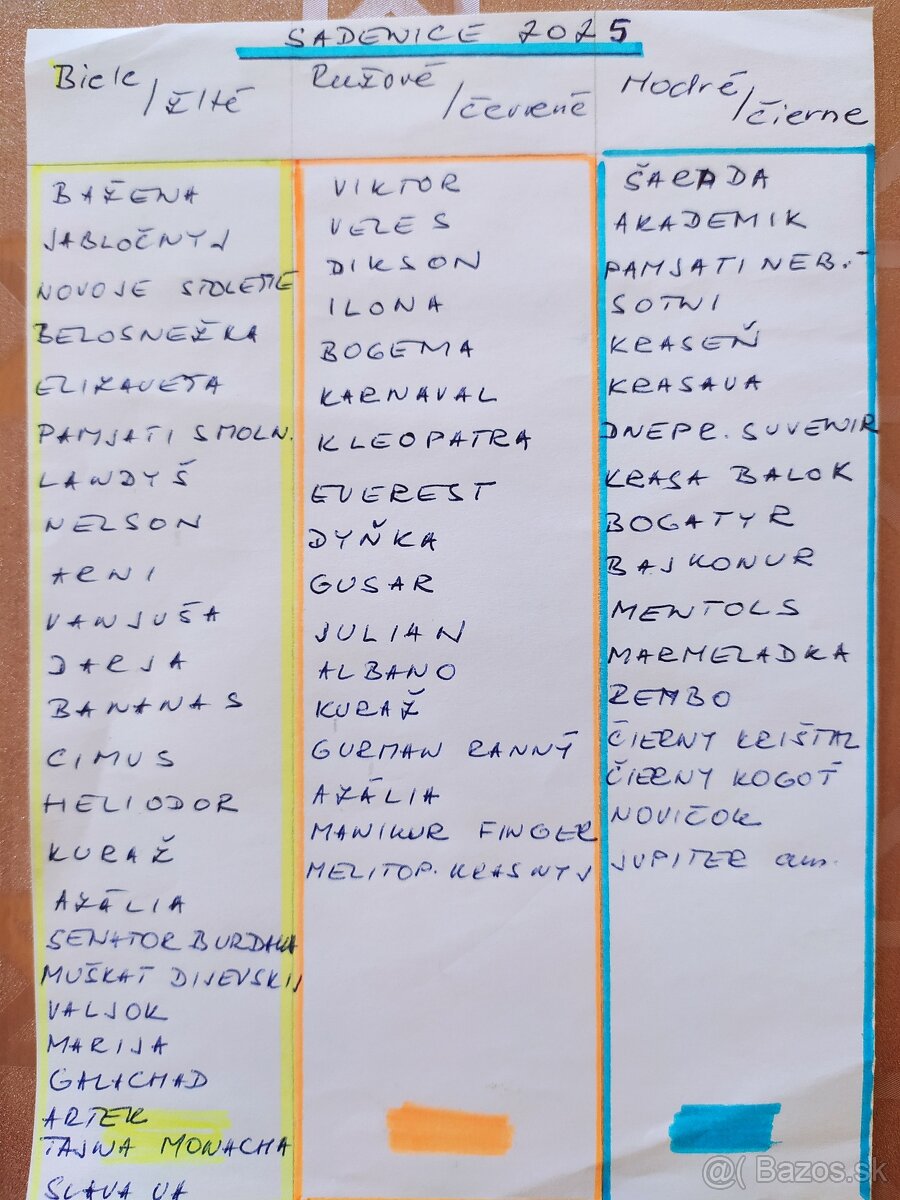 SADENICE 2025
Biele / Žlté
Ružové / červené
Modré / čierne
BAŽENA
JABLOČNYJ
NOVOJE STOLETIE
BELOSNEŽKA
ELIZAVETA
PAMJATI SMOLN.
LANDYŠ
NELSON
ARNI
VANJUŠA
DARJA
BANANAS
CIMUS
HELIODOR
KURAŽ
AZÁLIA
SENATOR BURDAKA
MUŠKAT DIJEVSKIJ
VALJOK
MARIJA
GALACHAD
ARTEK
TAJNA MONACHA
SLAVA UA
VIKTOR
VELES
DIKSON
ILONA
BOGEMA
KARNAVAL
KLEOPATRA
EVEREST
DYŇKA
GUSAR
JULIAN
ALBANO
KURAŽ
GURMAN RANNÝ
AZÁLIA
MANIKUR FINGER
MELITOP. KRASNYJ
ŠARADA
AKADEMIK
PAMJATI NEB.
SOTNI
KRASEŇ
KRASAVA
DNEPR. SUVENIR
KRASA BALOK
BOGATYR
BAJKONUR
MENTOLS
MARMELADKA
REMBO
ČIERNY KRIŠTAL
ČIERNY KOGOŤ
NOVIČOK
JUPITER am.
@( Bazos.sk